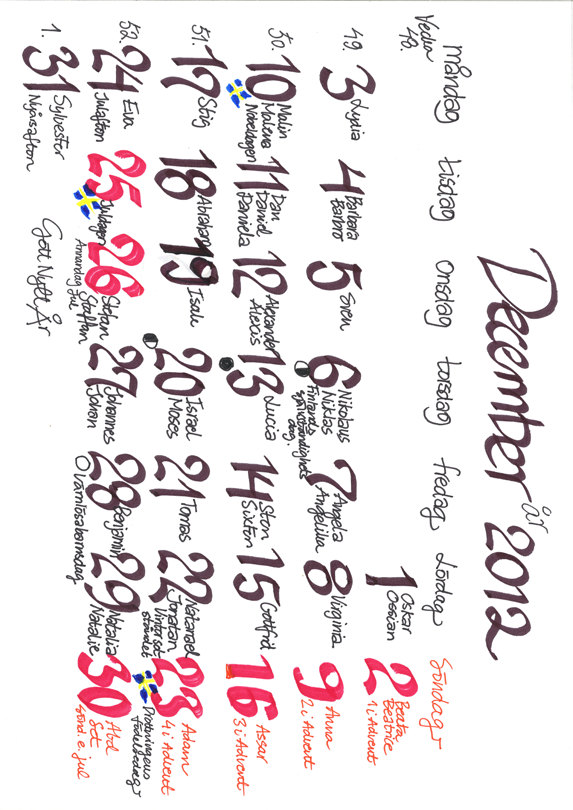 December år 2012
Vecka måndag tisdag onsdag torsdag fredag Lördag Söndag
48.
1 Oskar
Ossian
2 Beata
Beatrice
1 i Advent
49.
3 Lydia
4 Barbara
Barbro
5 Sven
6 Nikolaus
Niklas
Finlands
självständighets
dag.
7 Angela
Angelika
8 Virginia
9 Anna
2 i Advent
50.
10 Malin
Malena
Nobeldagen
11 Dan
Daniel
Daniela
12 Alexander
Alexis
13 Lucia
14 Sten
Sixten
15 Gottfrid
16 Assar
3 i Advent
51.
17 Stig
18 Abraham
19 Isak
20 Israel
Moses
21 Tomas
22 Natanael
Jonatan
Vinterset
ståndet
23 Adam
4 i Advent
Drottningens
födelsedag
52.
24 Eva
Julafton
25 Juldagen
26 Stefan
Staffan
Annandag Jul
27 Johannes
Johan
28 Benjamin
Värnlösabarnsdag
29 Natalia
Natalie
30 Abel
Set
Sönd. e. jul
1.
31 Sylvester
Nyårsafton
Gott Nytt År